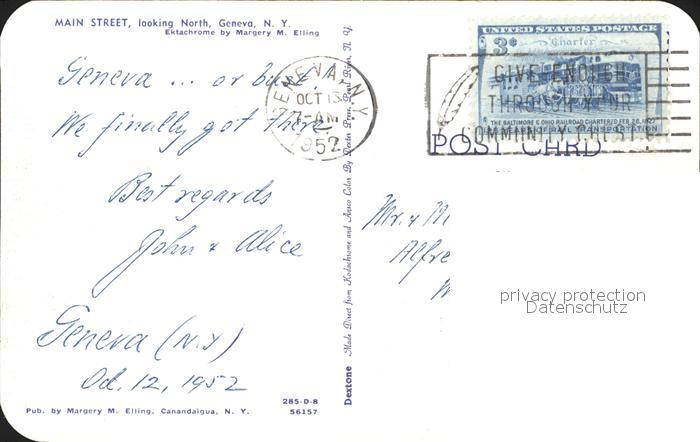 MAIN STREET, looking North, Geneva, N. Y.
Ektachrome by Margery M. Elling
Geneva ... or bust!
We finally got there
Best regards
John & Alice
Geneva (N.Y)
Oct. 12, 1952
285-D-8
Pub. by Margery M. Elling, Canandaigua, N. Y. 56157
Dextone Made Direct from Kodachrome and Ansco Color By Dexter Press Pearl River, N. Y.
GENEVA N.Y.
OCT 13
7-AM
1952
UNITED STATES POSTAGE
3¢ Charter
THE BALTIMORE & OHIO RAILROAD CHARTERED FEB. 28,
RAIL TRANSPORTATION
GIVE ENOUGH
THROUGH YOUR
COMMUNITY CHEST
POST CARD
Mr. & M
Alfre
privacy protection
Datenschutz